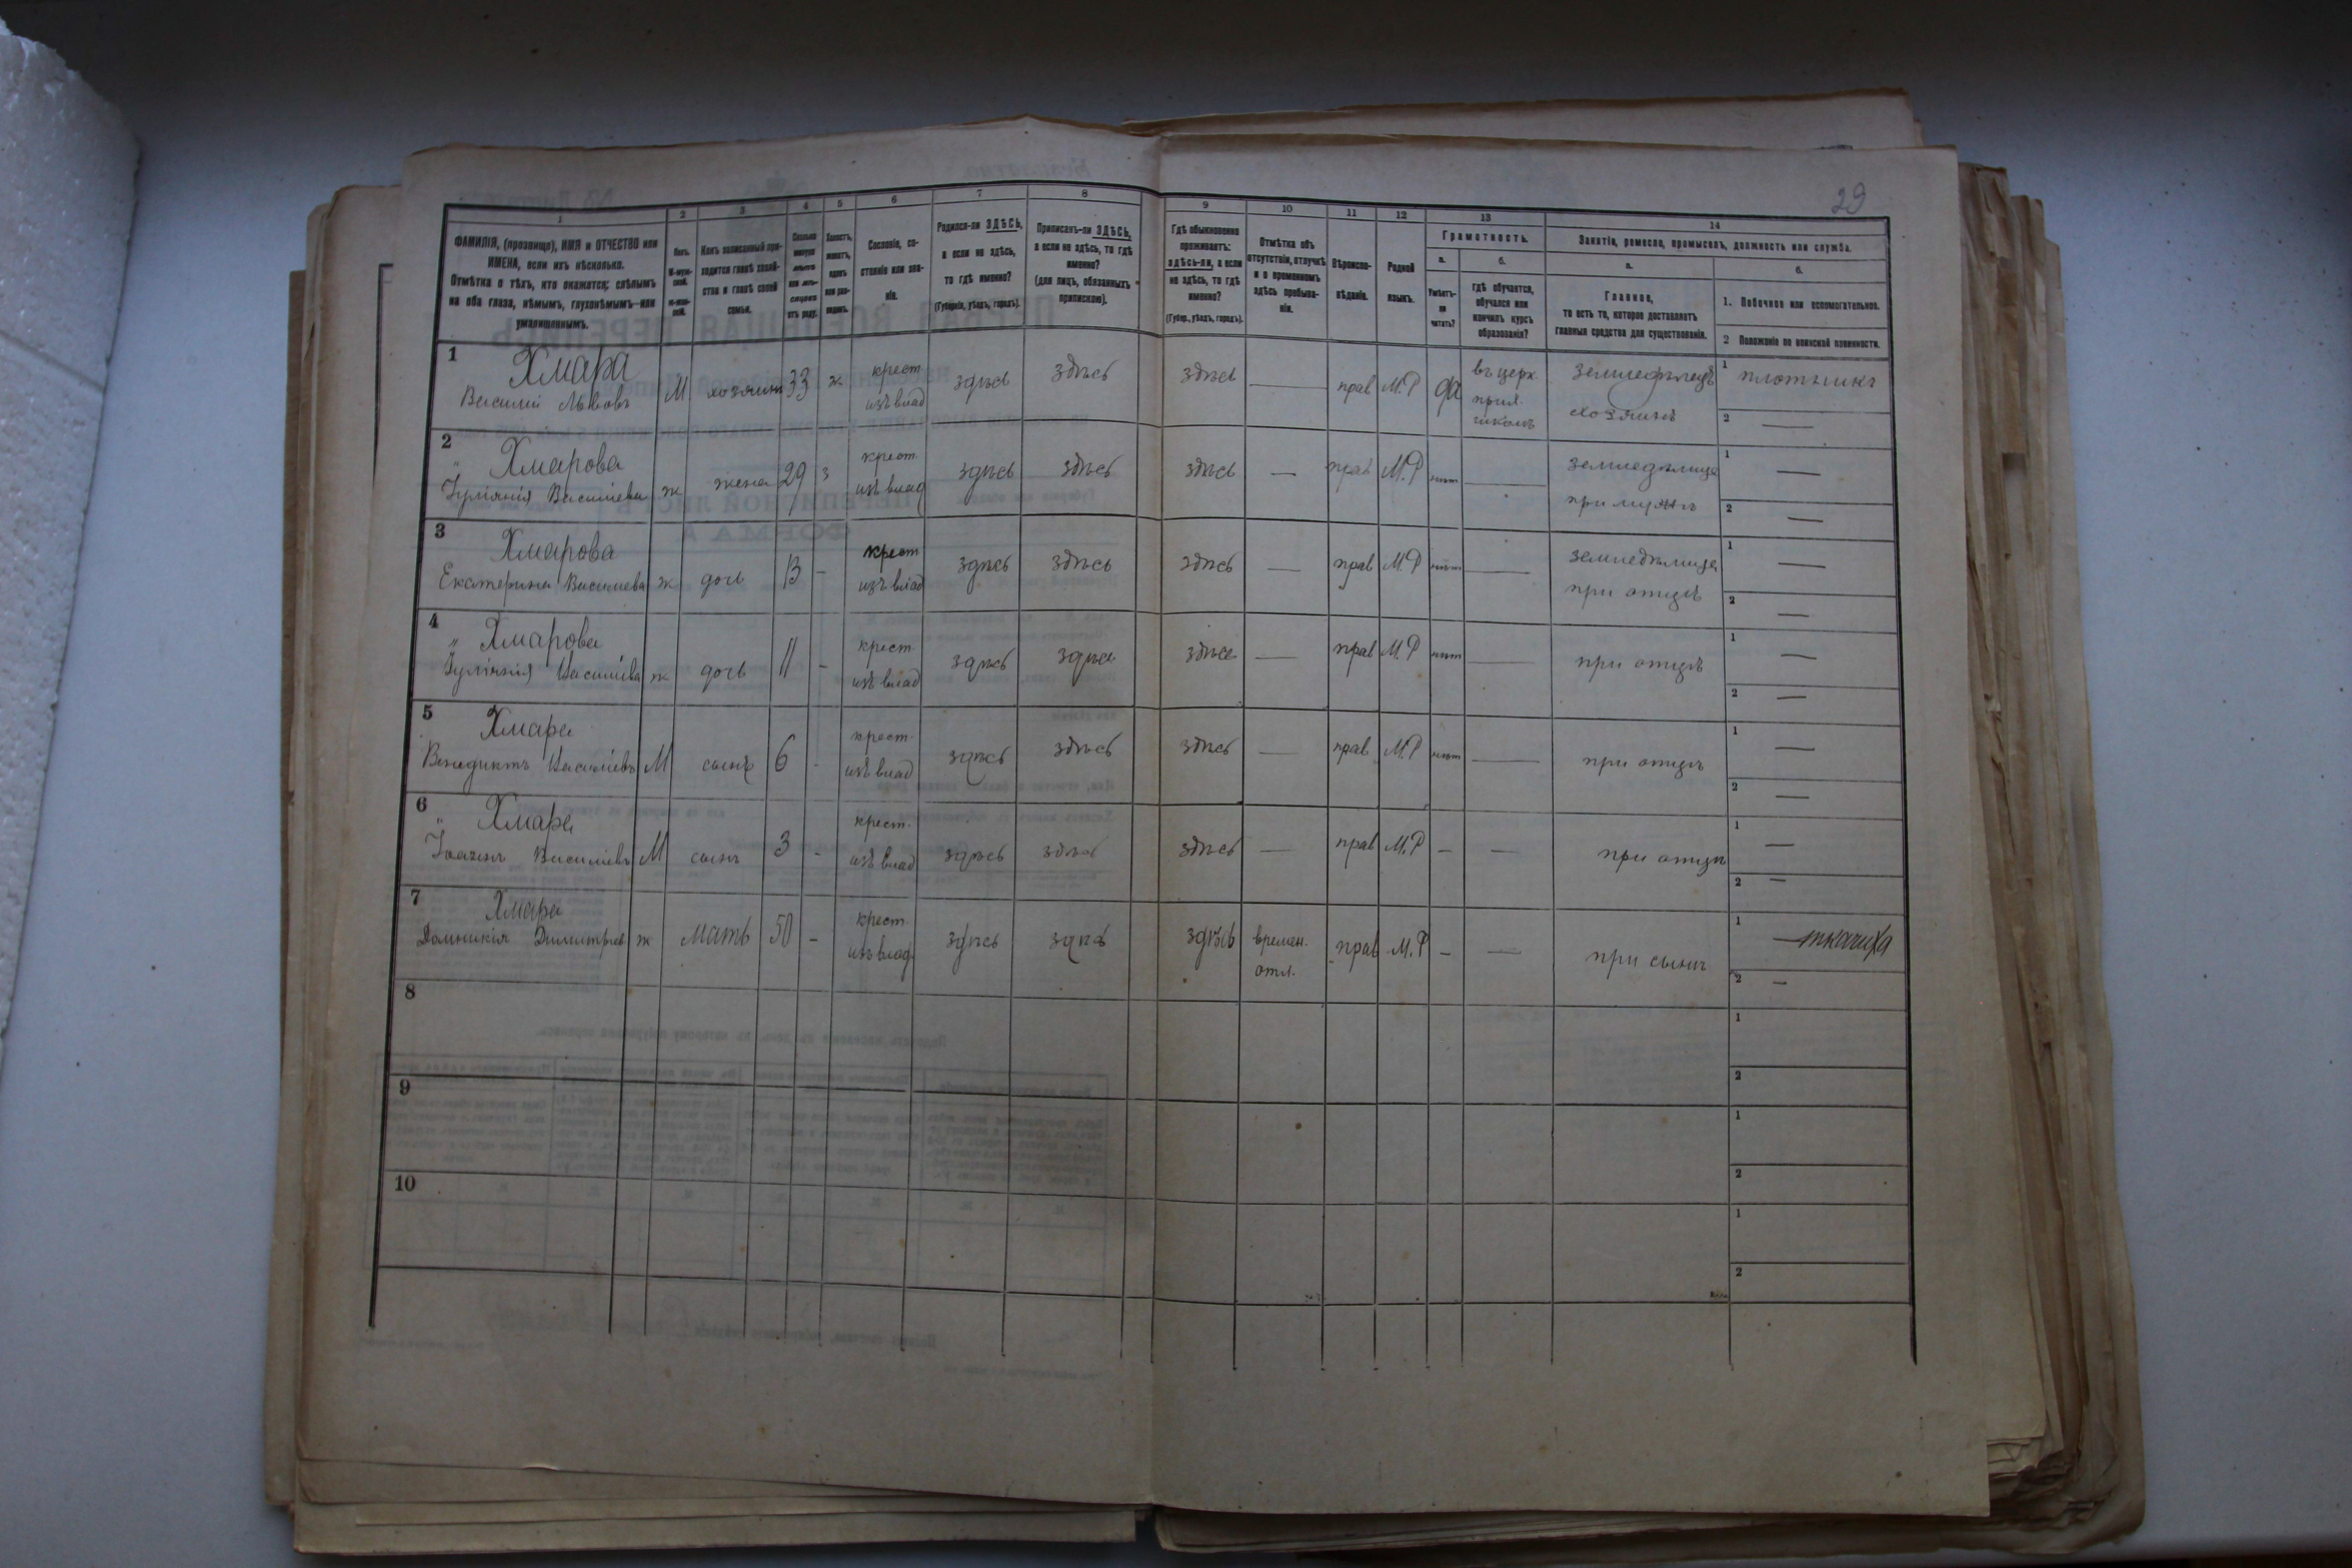 29
1 2 3 4 5 6 7 8 9 10 11 12 13 14
ФАМИЛІЯ, (прозвище), ИМЯ и ОТЧЕСТВО или
ИМЕНА, если ихъ нѣсколько.
Отмѣтка о тѣхъ, кто окажется: слѣпымъ
на оба глаза, нѣмымъ, глухонѣмымъ или
умалишеннымъ.
Полъ.
М-муж-
ской.
Ж-жен-
скій.
Какъ записанный при-
ходится главѣ хозяй-
ства и главѣ своей
семьи.
Сколько
минуло
лѣтъ
или мѣ-
сяцевъ
отъ роду.
Холостъ,
женатъ,
вдовъ
или раз-
веденъ.
Сословіе, со-
стояніе или зва-
ніе.
Родился-ли ЗДѢСЬ,
а если не здѣсь,
то гдѣ именно?
(Губернія, уѣздъ, городъ).
Приписанъ-ли ЗДѢСЬ,
а если не здѣсь, то гдѣ
именно?
(для лицъ, обязанныхъ
припискою).
Гдѣ обыкновенно
проживаетъ:
здѣсь-ли, а если
не здѣсь, то гдѣ
именно?
(Губер., уѣздъ, городъ).
Отмѣтка объ
отсутствіи, отлучкѣ
и о временномъ
здѣсь пребыва-
ніи.
Вѣроиспо-
вѣданіе.
Родной
языкъ.
Грамотность.
а.
Умѣетъ-
ли
читать?
б.
гдѣ обучается,
обучался или
кончилъ курсъ
образованія?
Занятіе, ремесло, промыселъ, должность или служба.
а.
Главное,
то есть то, которое доставляетъ
главныя средства для существованія.
б.
1. Побочное или вспомогательное.
2 Положеніе по воинской повинности.
1 Хмара
Василій Львовъ М хозяинъ 33 ж крест
изъ влад здѣсь здѣсь здѣсь — прав М.Р да въ церк.
прих.
школѣ земледѣлецъ
хозяинъ 1 плотникъ
2 —
2 Хмарова
Іуліянія Василіева ж жена 29 з крест
изъ влад здѣсь здѣсь здѣсь — прав М.Р нѣт — земледѣлица
при мужѣ 1 —
2 —
3 Хмарова
Екатерина Василиева ж дочь 13 - крест
изъ влад здѣсь здѣсь здѣсь — прав М.Р нѣт — земледѣлица
при отцѣ 1 —
2 —
4 Хмарова
Іуліянія Василіева ж дочь 11 - крест
изъ влад здѣсь здѣсь здѣсь — прав М.Р нѣт — при отцѣ 1 —
2 —
5 Хмара
Венедиктъ Василіевъ М сынъ 6 - крест
изъ влад здѣсь здѣсь здѣсь — прав М.Р нѣт — при отцѣ 1 —
2 —
6 Хмара
Василіевъ М сынъ 3 - крест.
изъ влад здѣсь здѣсь здѣсь — прав М.Р — — при отцѣ 1 —
2 —
7 Хмара
Домникія Димитріев ж мать 50 - крест.
изъ влад. здѣсь здѣсь здѣсь времен.
отл. прав М.Р — — при сынѣ 1 ткачиха
2 —
8 1
2
9 1
2
10 1
2